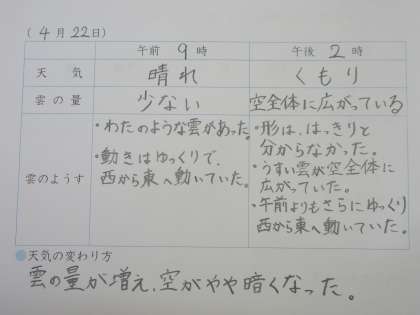 (4月22日)
午前 9 時 午後 2 時
天気 晴れ くもり
雲の量 少ない 空全体に広がっている
雲のようす
・わたのような雲があった。
・動きはゆっくりで、
西から東へ動いていた。
・形は、はっきりと
分からなかった。
・うすい雲が空全体に
広がっていた。
・午前よりもさらにゆっくり
西から東へ動いていた。
天気の変わり方
雲の量が増え、空がやや暗くなった。